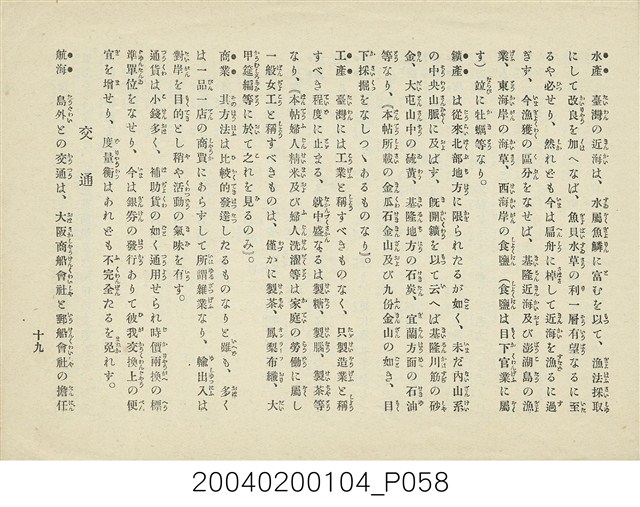 水產　臺灣の近海は、水屬魚鱗に富むを以て、漁法採取
にして改良を加へなば、魚貝水草の利一層有望なるに至
るや必せり、然れども今は扁舟に棹して近海を漁るに過
ぎす、今漁獲の區分をなせば、基隆近海及び澎湖島の漁
業、東海岸の海草、西海岸の食鹽（食鹽は目下官業に屬
す）竝に牡蠣等なり。
鑛產　は從來北部地方に限られたるが如く、未だ內山系
の中央山脈に及ばす、旣開鑛を以て云へば基隆川筋の砂
金、大屯山中の硫黃、基隆地方の石炭、宜蘭方面の石油
等なり、（本帖所載の金瓜石金山及び九份金山の如き、目
下採掘をなしつゝあるものなり）。
工產　臺灣には工業と稱すべきものなく、只製造業と稱
すべき程度に止まる、就中盛なるは製糖、製腦、製茶等
なり、（本帖婦人精米及び婦人洗濯等は家庭の勞働に屬し
一般女工と稱すべきものは、僅かに製茶、鳳梨布織、大
甲筵編等に於て之れを見るのみ）。
商業　其方法は比較的發達したるものなりと雖も、多く
は一品一店の商賣にあらすして所謂雜業なり、輸出入は
對岸を目的とし稍や活動の氣味を有す。
通貨は小錢多く、補助貨の如く通用せられ時價兩換の標
準單位をなせり、今は銀券の發行ありて彼我交換上の便
宜を增せり、度量衡はあれども不完全たるを免れす。
交通
航海　島外との交通は、大阪商船會社と郵船會社の擔任
十九
20040200104_P058